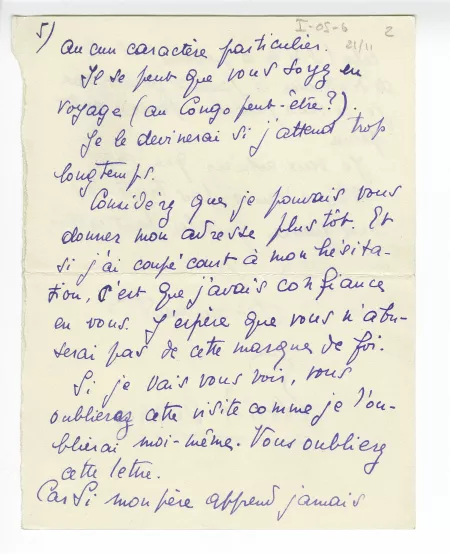 I-05-6
2
5)
21/11
aucun caractère particulier.
Il se peut que vous soyez en
voyage (au Congo peut-être?).
Je le devinerai si j'attend trop
longtemps.
Considérez que je pouvais vous
donner mon adresse plus tôt. Et
si j'ai coupé court à mon hésita-
tion, c'est que j'avais confiance
en vous. J'espère que vous n'abu-
serai pas de cette marque de foi.
Si je vais vous voir, vous
oublierez cette visite comme je l'ou-
blierai moi-même. Vous oubliez
cette lettre.
Car Si mon père apprend jamais